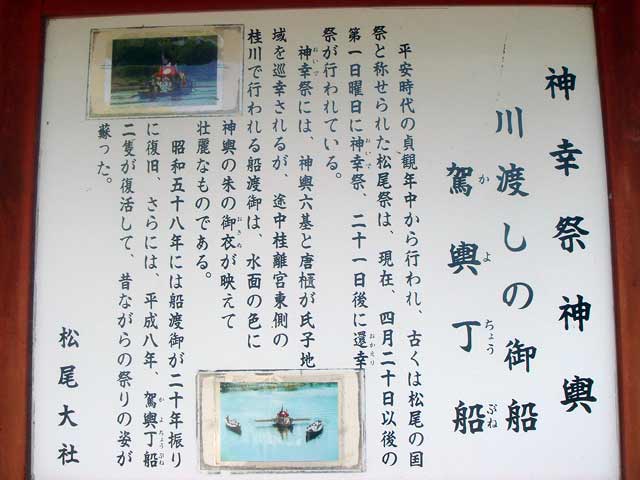 神幸祭神輿
川渡しの御船
駕輿丁船
かよちょうぶね
平安時代の貞観年中から行われ、古くは松尾の国
祭と称せられた松尾祭は、現在、四月二十日以後の
第一日曜日に神幸祭、二十一日後に還幸
おいで
おかえり
祭が行われている。
神幸祭には、神輿六基と唐櫃が氏子地
おいで
域を巡幸されるが、途中桂離宮東側の
桂川で行われる船渡御は、水面の色に
神輿の朱の御衣が映えて
おきぬ
壮麗なものである。
昭和五十八年には船渡御が二十年振り
に復旧、さらには、平成八年、駕輿丁船
かよちょうぶね
二隻が復活して、昔ながらの祭りの姿が
蘇った。
松尾大社